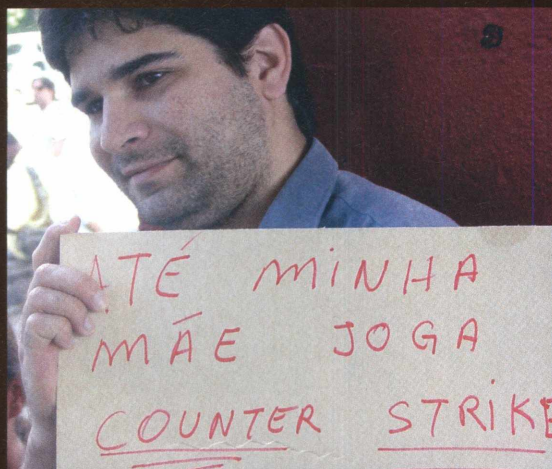 ATÉ MINHA
MÃE JOGA
COUNTER STRIKE